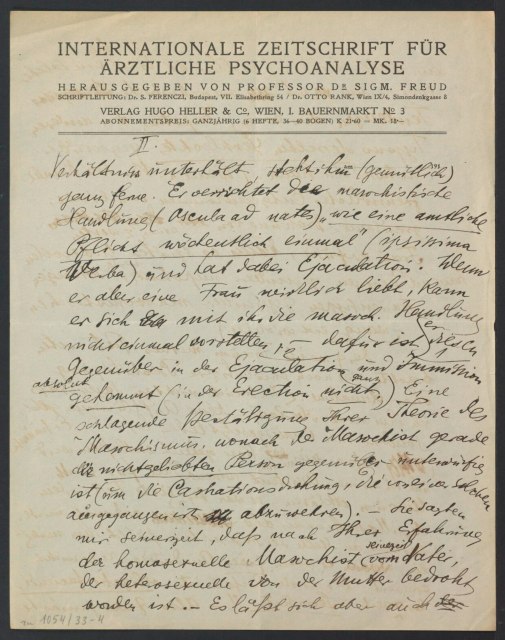 INTERNATIONALE ZEITSCHRIFT FÜR
ÄRZTLICHE PSYCHOANALYSE
HERAUSGEGEBEN VON PROFESSOR DR SIGM. FREUD
SCHRIFTLEITUNG: Dr. S. FERENCZI, Budapest, VII. Elisabethring 54 / Dr. OTTO RANK, Wien IX/4, Simondenkgasse 8
VERLAG HUGO HELLER & Co, WIEN, I. BAUERNMARKT No 3
ABONNEMENTSPREIS: GANZJÄHRIG (6 HEFTE, 36—40 BOGEN) K 21·60 = MK. 18·—
II.
Verhältniss unterhält, steht ihm (gemütlich)
ganz ferne. Er verrichtet die masochistische
Handlung (Oscula ad nates) „wie eine amtliche
Pflicht wöchentlich einmal" (ipsissima
Verba) und hat dabei Ejaculation. Wenn
er aber eine Frau wirklich liebt, kann
er sich mit ihr die masoch. Handlung
nicht einmal vorstellen, — dafür ist er dieser
Gegenüber in der Ejaculation und Immission
absolut
gehemmt (in der Erection nicht ganz). Eine
schlagende Bestätigung Ihrer Theorie des
Masochismus, wonach der Masochist gerade
der nichtgeliebten Person gegenüber unterwürfig
ist (um die Castrationsdrohung, die von einer solchen
ausgegangen ist abzuwehren). — Sie sagten
mir seinerzeit, daß nach Ihrer Erfahrung
der homosexuelle Masochist seinerzeit vom Vater,
der heterosexuelle von der Mutter bedroht
worden ist. — Es läßt sich aber auch
1054/33-4